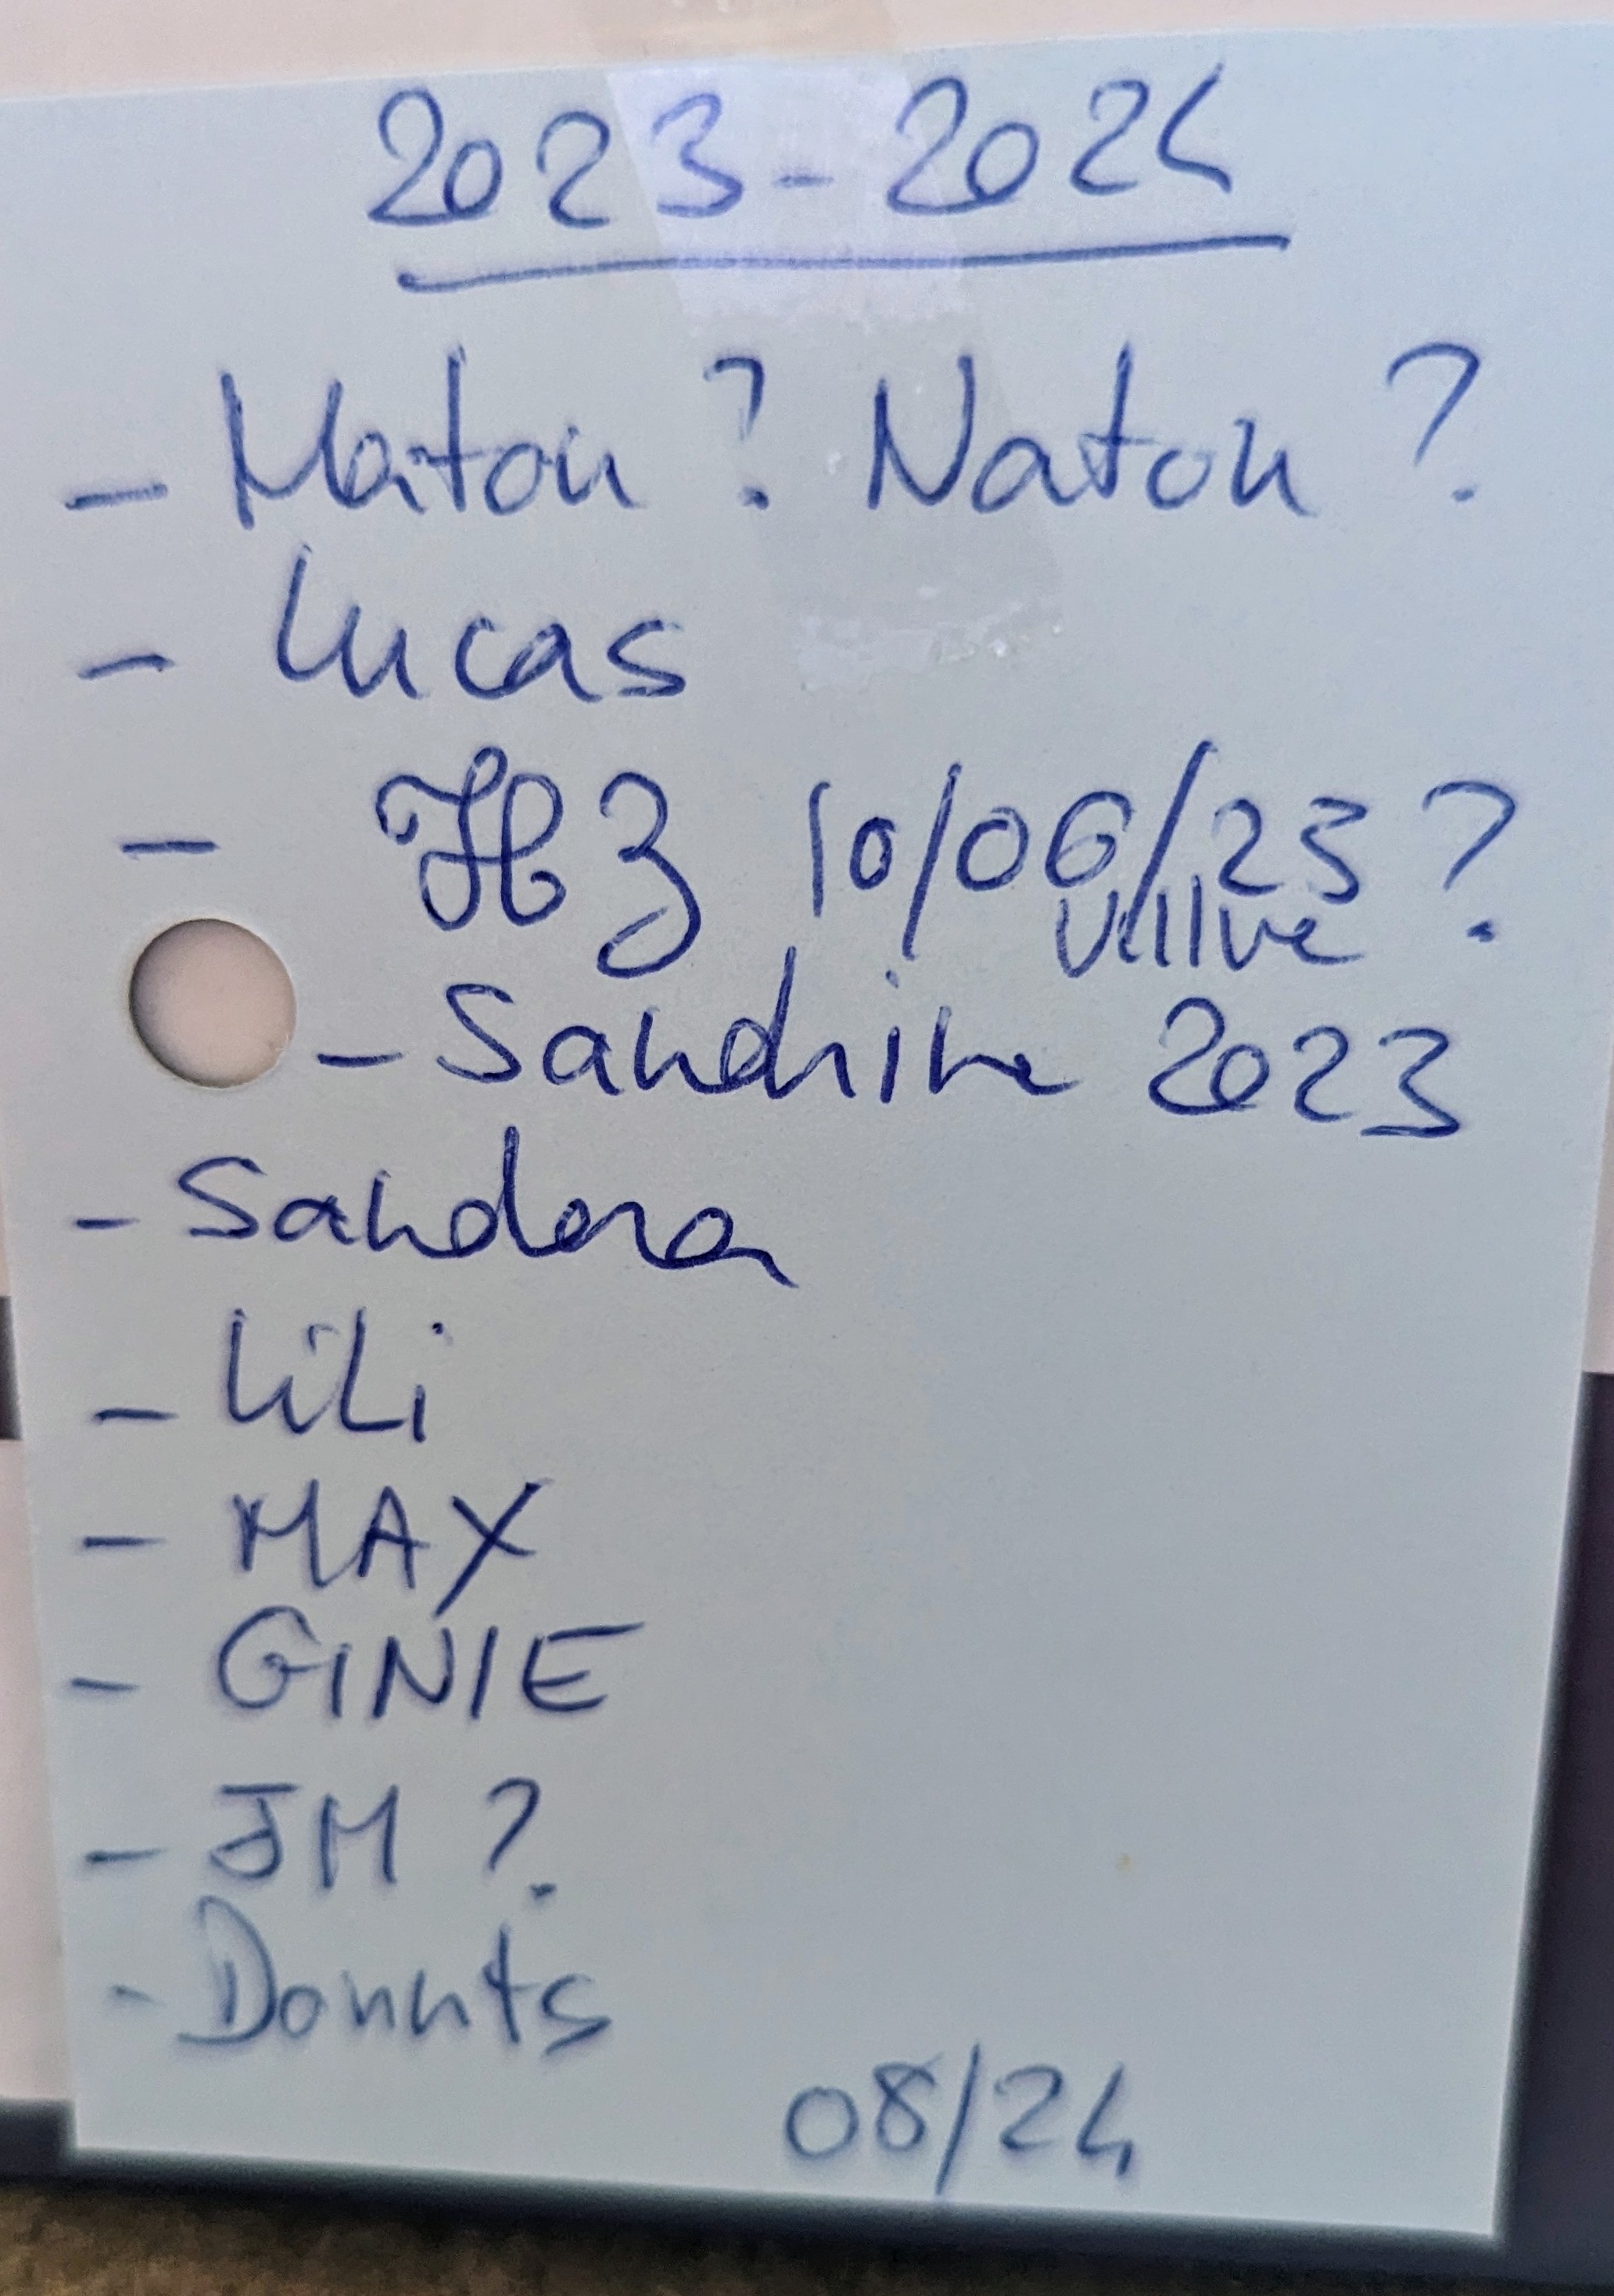 2023-2024
- Maton ? Naton ?
- Lucas
- HZ 10/06/23 ?
- Sandrine 2023
- Sandora
- LiLi
- MAX
- GINIE
- JM ?
- Donuts
08/24